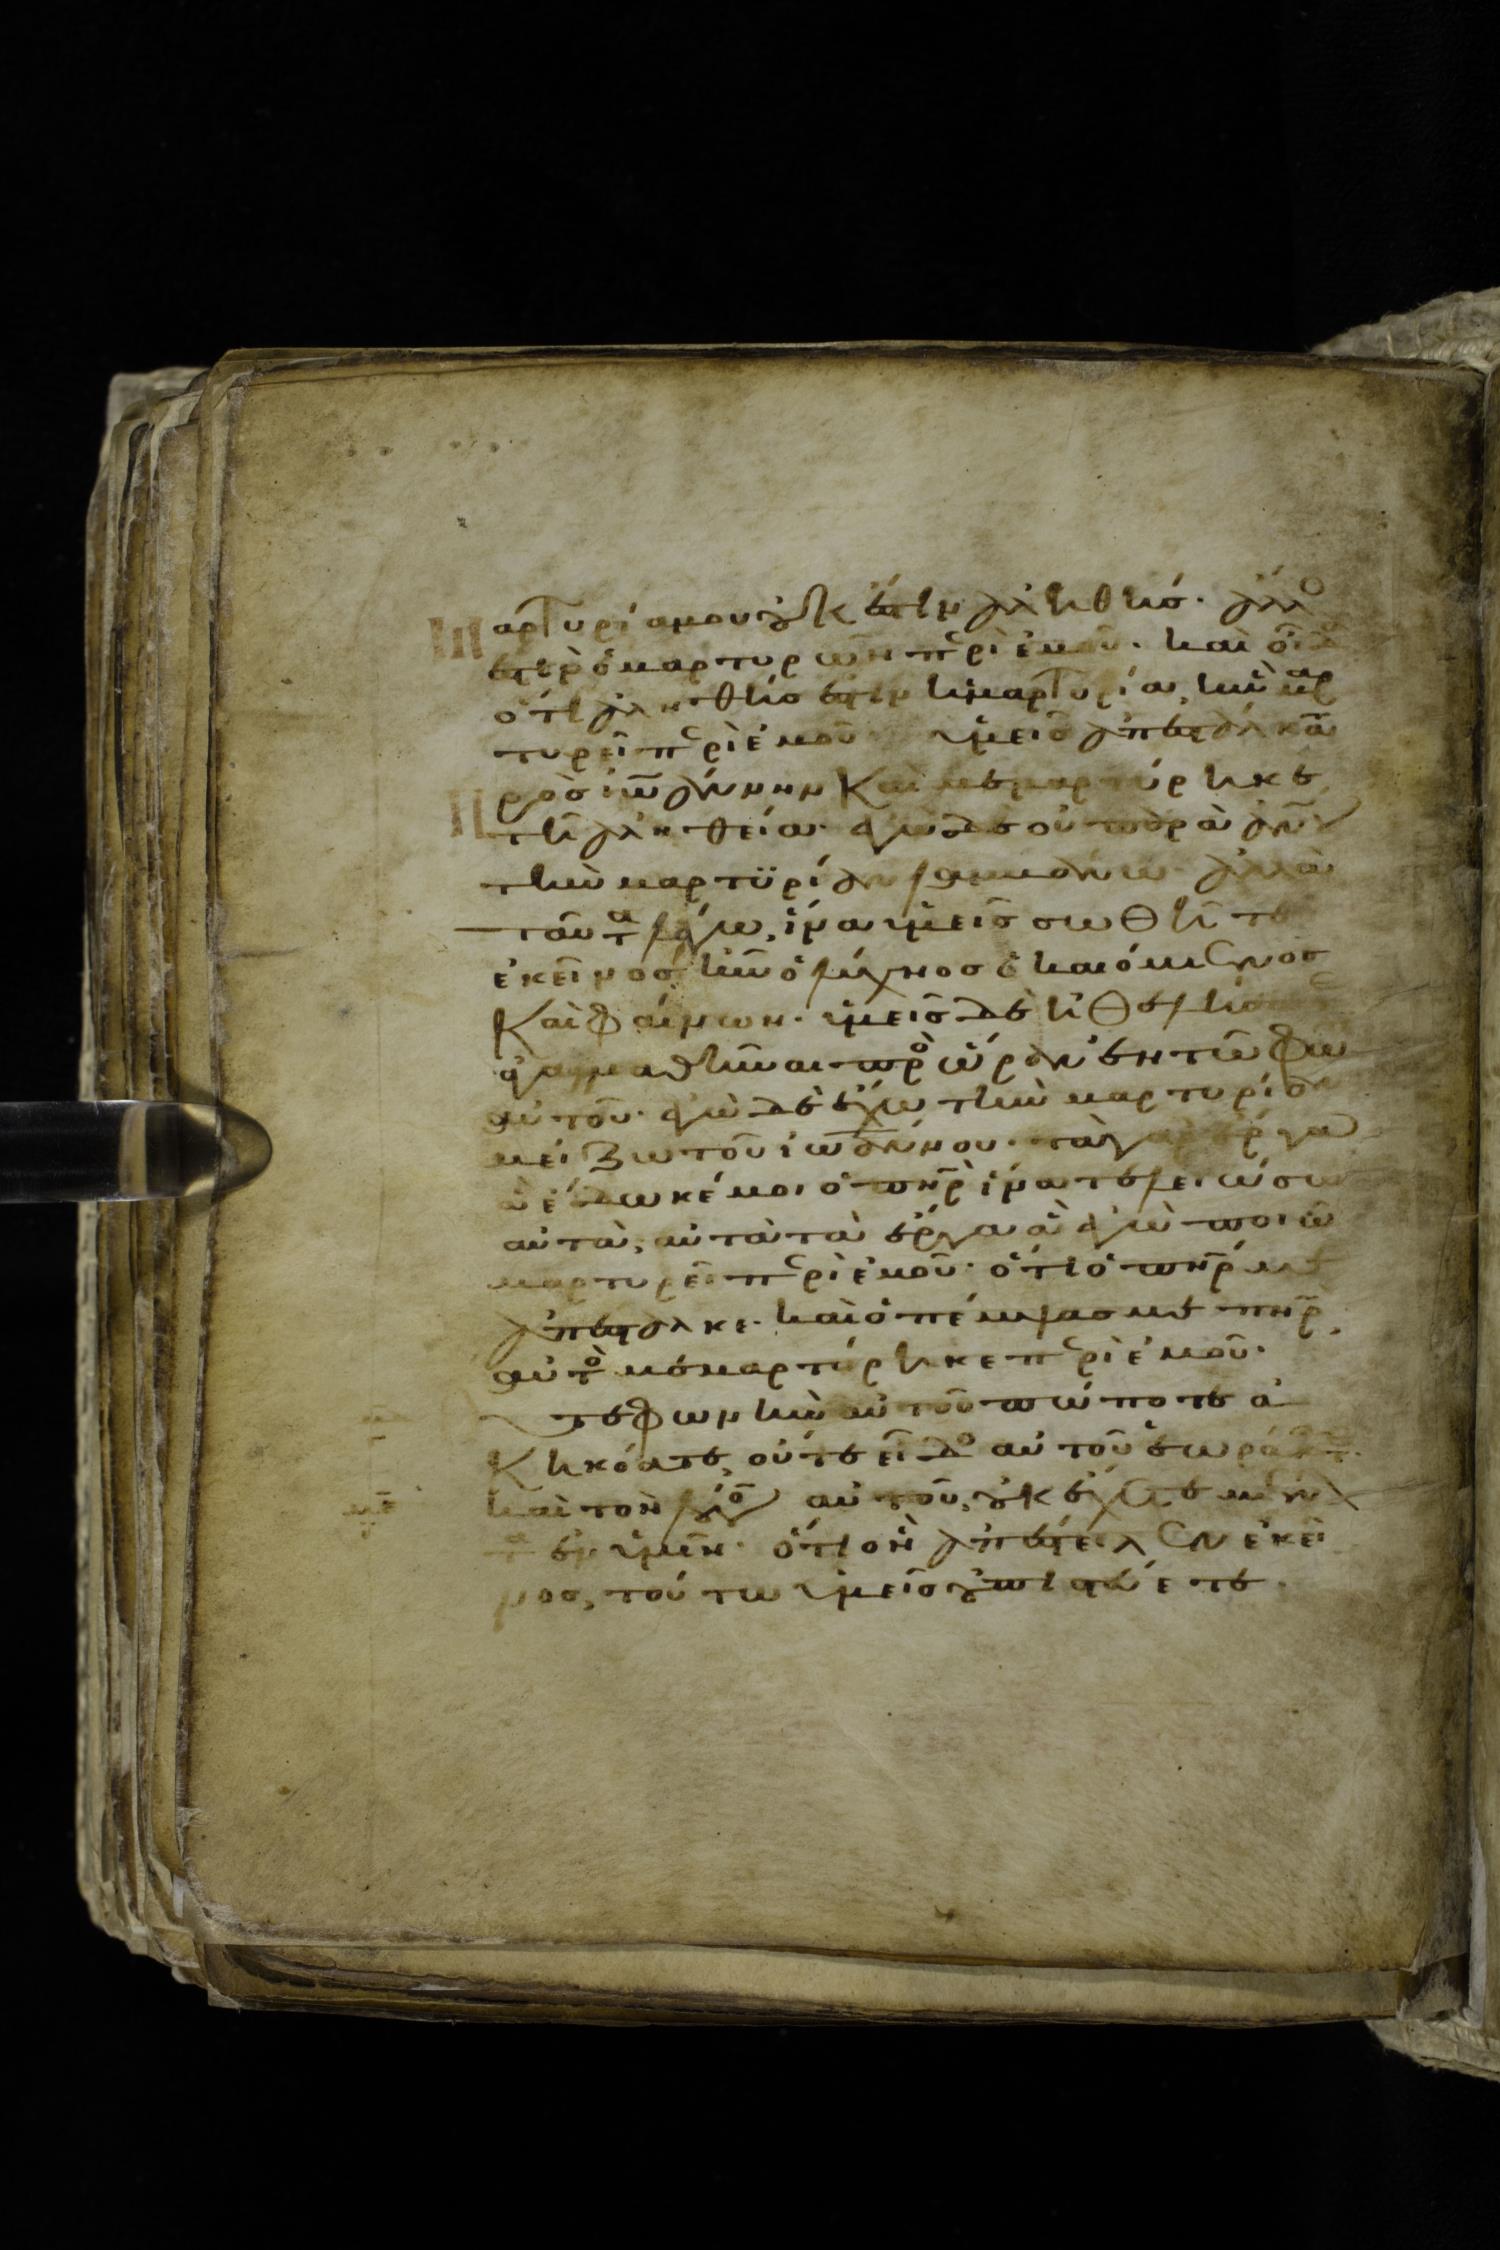 αρτυρία μου οὐκ ἔστιν ἀληθής· ἄλλο
ἐστὶν ὁ μαρτυρῶν περὶ ἐμοῦ· καὶ οἶδα
ὅτι ἀληθής ἐστιν ἡ μαρτυρία, ἣν μαρ
τυρεῖ περὶ ἐμοῦ ὑμεῖς ἀπεστάλκα
πρὸς ἰωάννην καὶ μεμαρτύρηκε
τῆ ἀληθεία· ἐγὼ δὲ οὐ παρὰ ἀνου
τὴν μαρτϋρίαν λαμβάνω· ἀλλὰ
ταῦτα λέγω, ἵνα ὑμεῖς σωθῆτε
ἐκεῖνος ἦν ὁ λύχνος ὁ καιόμενος
Καὶ φαίνων· ὑμεῖς δὲ ἠθελήσατε
ἀγαλλιαθῆναι πρὸς ὥραν ἐν τῶ φωτὶ
αὐτοῦ· ἐγὼ δὲ ἔχω τὴν μαρτυρίαν
μείζω τοῦ ἰωάννου· τὰ γὰρ ἔργα
ἃ ἔδωκέ μοι ὁ πηρ ἵνα τελειώσω
αὐτὰ, αὐτὰ τὰ ἔργα ἃ ἐγὼ ποιῶ
μαρτυρεῖ περὶ ἐμοῦ· ὅτι ὁ πηρ με
ἀπέσταλκε· καὶ ὁ πέμψας με πηρ
αὐτὸς μεμαρτύρηκε περὶ ἐμοῦ·
τε φωνὴν αὐτοῦ πώποτε ἀ
Κηκόατε, οὔτε εἶδος αὐτοῦ ἑωράκατε·
καὶ τὸν λόγον αὐτοῦ, οὐκ ἔχετε μένον
τα ἐν ὑμῖν· ὅτι ὃν ἀπέστειλεν ἐκεῖ
νος, τούτω ὑμεῖς οὐ πιστεύετε·